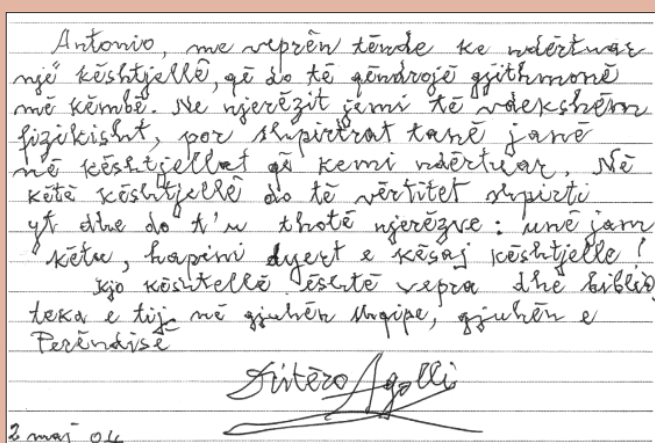 Antonio, me veprën tënde ke ndërtuar
një kështjellë, që do të qëndrojë gjithmonë
më këmbë. Ne njerëzit jemi të vdekshëm
fizikisht, por shpirtrat tanë janë
në kështjellat që kemi ndërtuar. Në
këtë kështjellë do të vërtitet shpirti
yt dhe do t'u thotë njerëzve: unë jam
këtu, hapeni dyert e kësaj kështjelle!
Kjo kështellë është vepra dhe biblio
teka e tij në gjuhën shqipe, gjuhën e
Perëndisë
Dritëro Agolli
2 maj 04